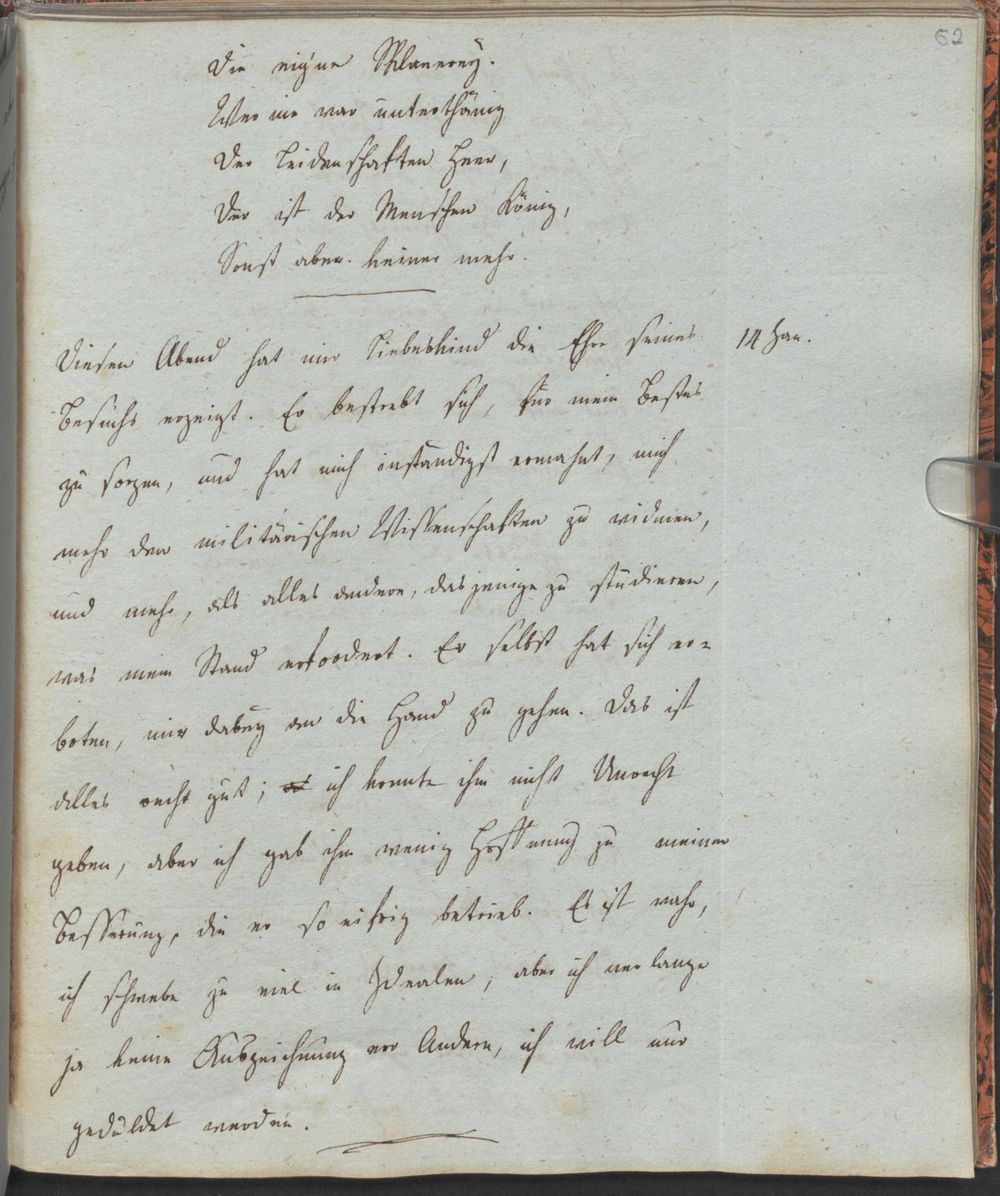 62
Die eigne Sklaverey.
Wer nie war unterthänig
Der Leidenschaften Heer,
Der ist der Menschen König,
Sonst aber keiner mehr.
Diesen Abend hat mir Liebeskind die Ehre seines 14 Jan.
Besuchs erzeigt. Er bestrebt sich, für mein Bestes
zu sorgen, und hat mich inständigst ermahnt, mich
mehr den militärischen Wissenschaften zu widmen,
und mehr, als alles andere, dasjenige zu studieren,
was mein Stand erfordert. Er selbst hat sich er=
boten, mir dabey an die Hand zu gehen. Das ist
alles recht gut; ich konnte ihm nicht Unrecht
geben, aber ich gab ihm wenig Hoffnung zu meiner
Besserung, die er so eifrig betrieb. Es ist wahr,
ich schwebe zu viel in Idealen, aber ich verlange
ja keine Auszeichnung vor Andern, ich will nur
geduldet werden.